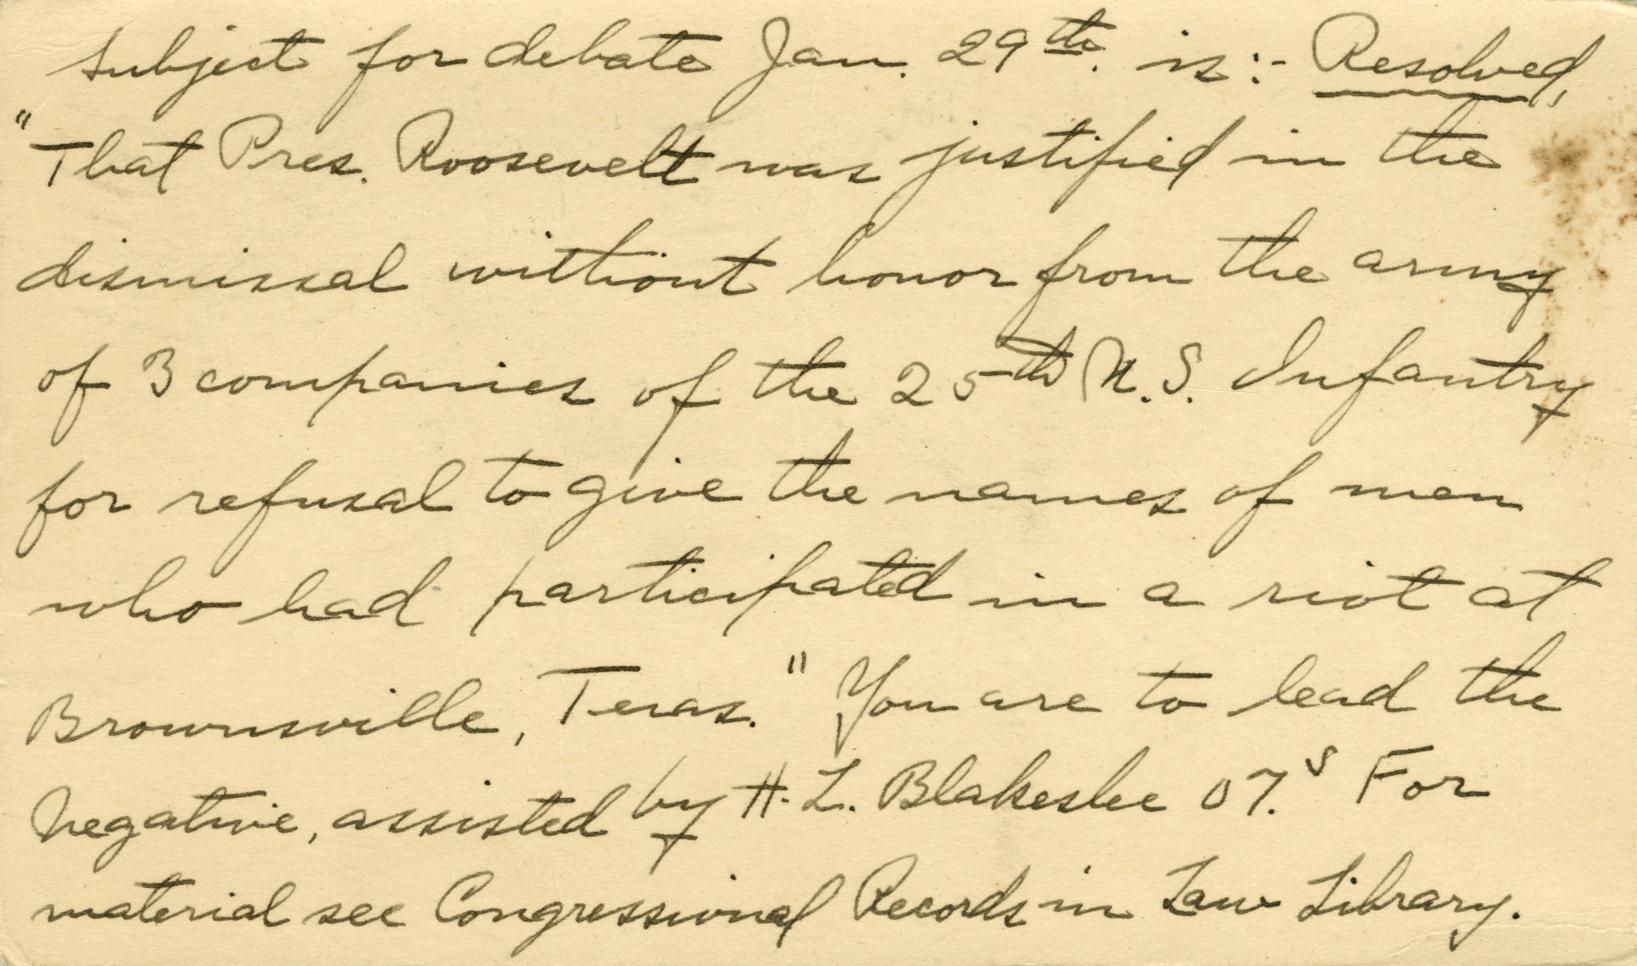 Subject for debate Jan. 29th. is:- Resolved,
"That Pres. Roosevelt was justified in the
dismissal without honor from the army
of 3 companies of the 25th U.S. Infantry
for refusal to give the names of men
who had participated in a riot at
Brownsville, Texas." You are to lead the
Negative, assisted by H. L. Blakeslee 07.S For
material see Congressional Records in Law Library.